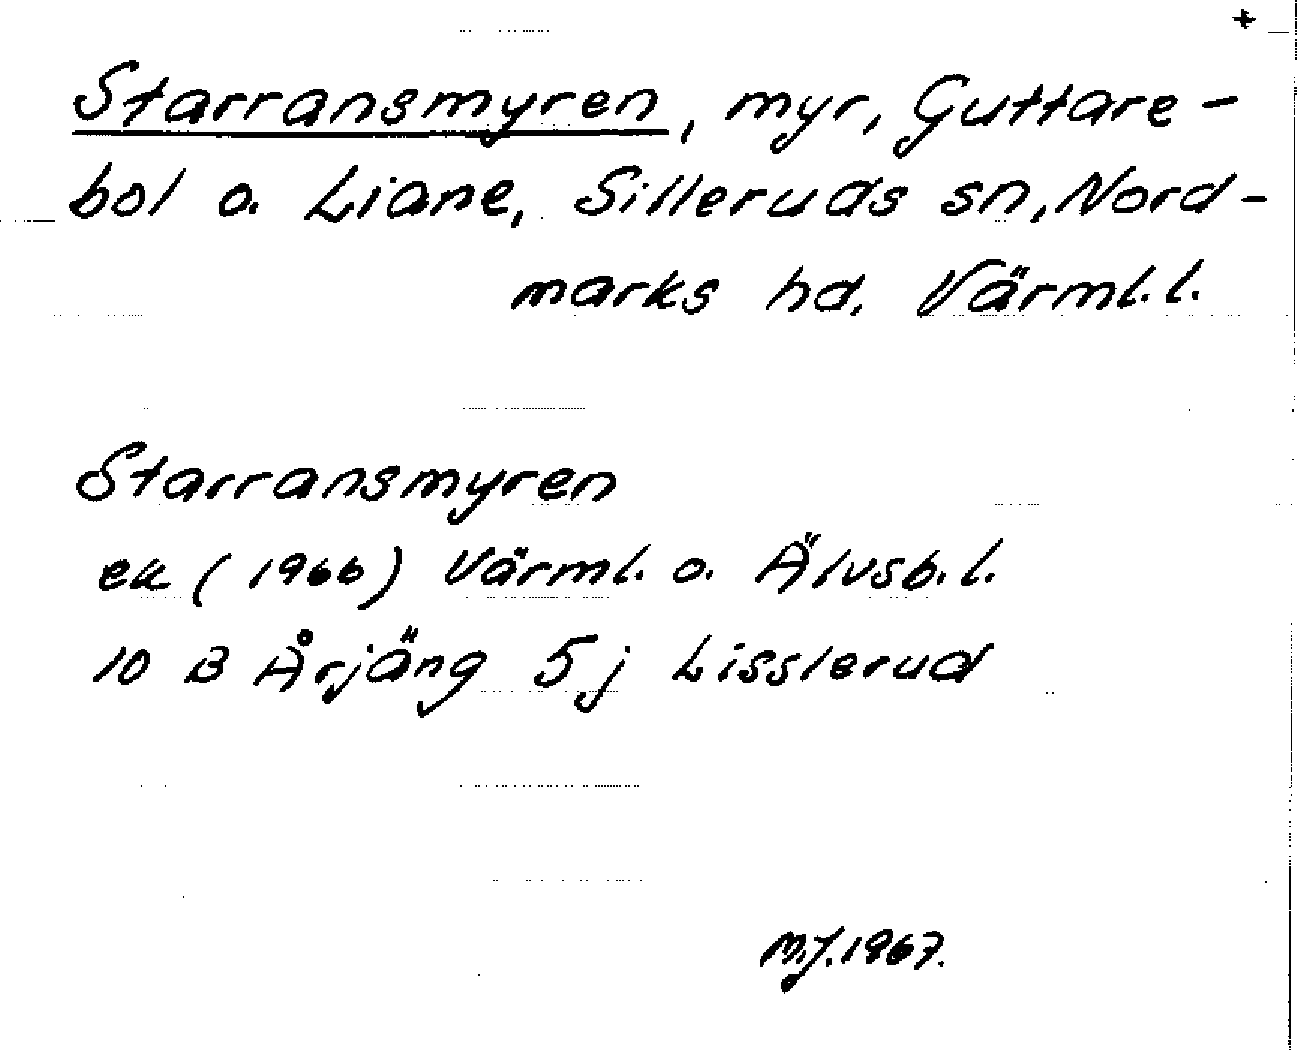 +
Starransmyren, myr, Guttare-
bol o. Liane, Silleruds sn, Nord-
marks hd. Värml.l.
Starransmyren
ek (1966) Värml. o. Älvsb.l.
10 B Årjäng 5j Lisslerud
M.J.1967.